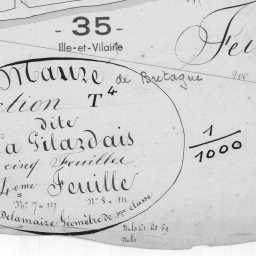 - 35 -
Ille-et-Vilaine
Feu
Maure de Bretagne
ction T4
dite
a Gilardais
cinq Feuilles
4eme Feuille
Nos 7 = 111 Nos 8 = 111
Delamaire Géomètre de 1ère classe
1
1000